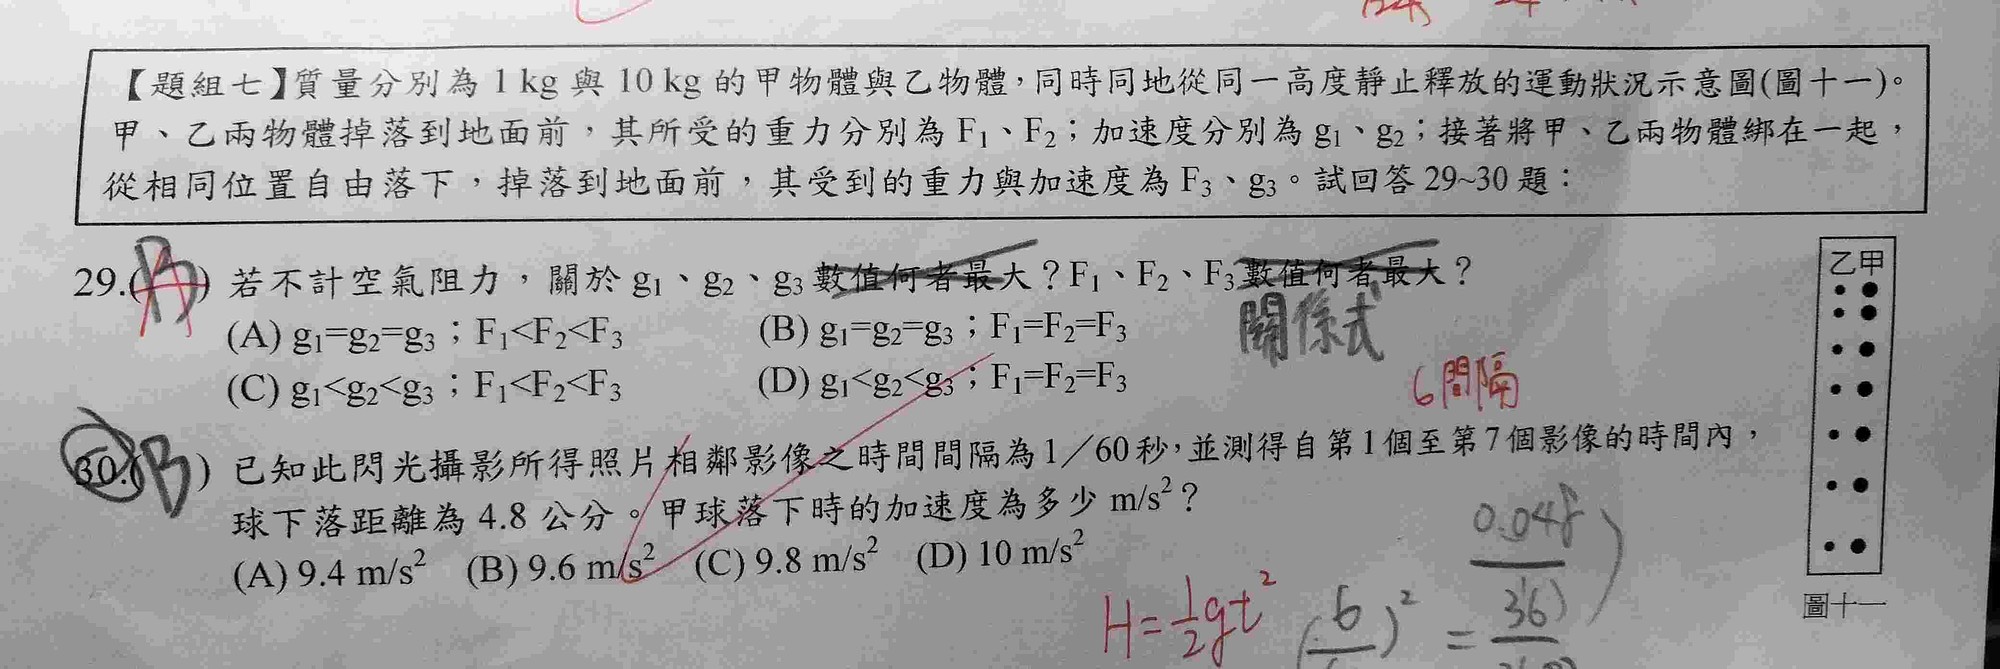 【題組七】質量分別為 1 kg 與 10 kg 的甲物體與乙物體，同時同地從同一高度靜止釋放的運動狀況示意圖(圖十一)。
甲、乙兩物體掉落到地面前，其所受的重力分別為 F₁、F₂；加速度分別為 g₁、g₂；接著將甲、乙兩物體綁在一起，
從相同位置自由落下，掉落到地面前，其受到的重力與加速度為 F₃、g₃。試回答 29~30 題：
29.( B ) 若不計空氣阻力，關於 g₁、g₂、g₃ 數值何者最大？F₁、F₂、F₃ 數值何者最大？
關係式
(A) g₁=g₂=g₃；F₁<F₂<F₃ (B) g₁=g₂=g₃；F₁=F₂=F₃
(C) g₁<g₂<g₃；F₁<F₂<F₃ (D) g₁<g₂<g₃；F₁=F₂=F₃
6間隔
30.( B ) 已知此閃光攝影所得照片相鄰影像之時間間隔為 1／60 秒，並測得自第 1 個至第 7 個影像的時間內，
球下落距離為 4.8 公分。甲球落下時的加速度為多少 m/s²？
(A) 9.4 m/s² (B) 9.6 m/s² (C) 9.8 m/s² (D) 10 m/s²
乙甲
圖十一
0.048
H=½gt²
(6)² = 36